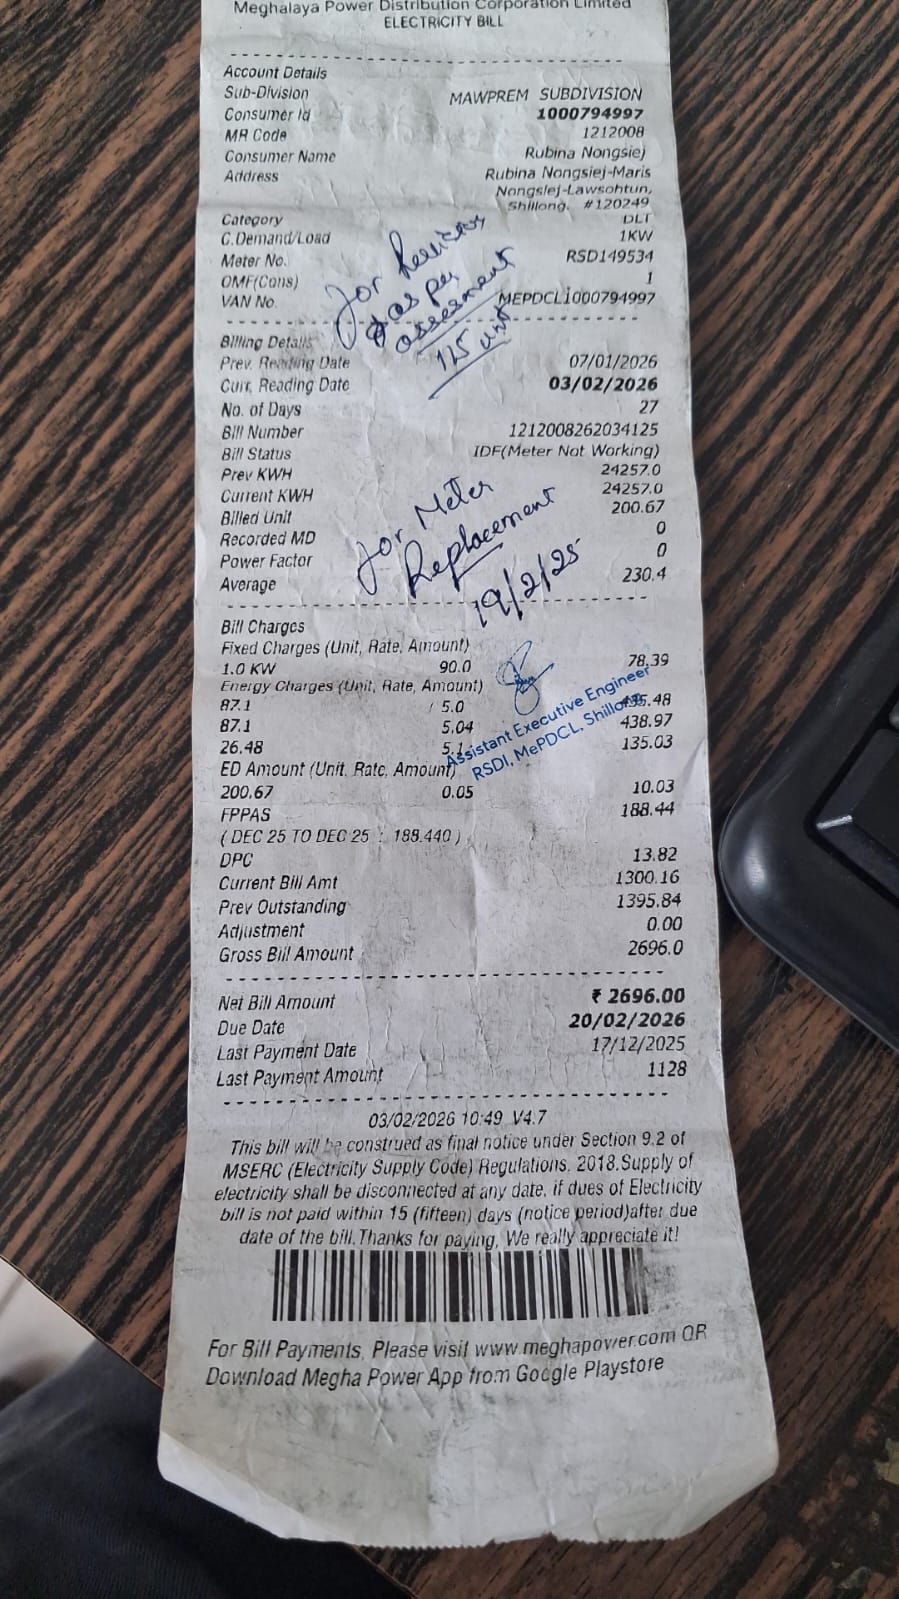 Meghalaya Power Distribution Corporation Limited
ELECTRICITY BILL
Account Details
Sub-Division MAWPREM SUBDIVISION
Consumer Id 1000794997
MR Code 1212008
Consumer Name Rubina Nongsiej
Address Rubina Nongsiej-Maris
Nongsiej-Lawsohtun,
Shillong. #120249
Category DLT
C.Demand/Load 1KW
Meter No. RSD149534
OMF(Cons) 1
VAN No. MEPDCL1000794997
for
as per
assesment
125 unit
Billing Details
Prev. Reading Date 07/01/2026
Curr. Reading Date 03/02/2026
No. of Days 27
Bill Number 1212008262034125
Bill Status IDF(Meter Not Working)
Prev KWH 24257.0
Current KWH 24257.0
Billed Unit 200.67
Recorded MD 0
Power Factor 0
Average 230.4
for Meter
Replacement
19/2/25
Bill Charges
Fixed Charges (Unit, Rate, Amount)
1.0 KW 90.0 78.39
Energy Charges (Unit, Rate, Amount)
87.1 5.0 435.48
87.1 5.04 438.97
26.48 5.1 135.03
Assistant Executive Engineer
RSDI, MePDCL, Shillong
ED Amount (Unit, Rate, Amount)
200.67 0.05 10.03
FPPAS 188.44
( DEC 25 TO DEC 25 : 188.440 )
DPC 13.82
Current Bill Amt 1300.16
Prev Outstanding 1395.84
Adjustment 0.00
Gross Bill Amount 2696.0
Net Bill Amount ₹ 2696.00
Due Date 20/02/2026
Last Payment Date 17/12/2025
Last Payment Amount 1128
03/02/2026 10:49 V4.7
This bill will be construed as final notice under Section 9.2 of
MSERC (Electricity Supply Code) Regulations, 2018.Supply of
electricity shall be disconnected at any date, if dues of Electricity
bill is not paid within 15 (fifteen) days (notice period)after due
date of the bill.Thanks for paying, We really appreciate it!
For Bill Payments, Please visit www.meghapower.com OR
Download Megha Power App from Google Playstore